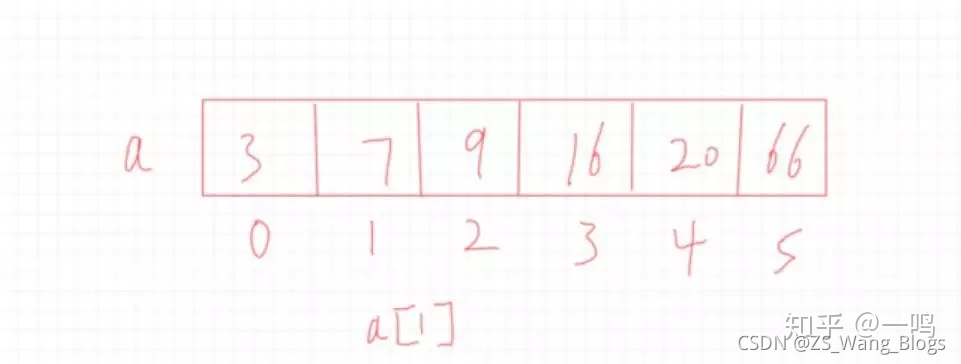 a 3 7 9 16 20 66
0 1 2 3 4 5
a[1]
知乎 @一鸣
CSDN @ZS_Wang_Blogs